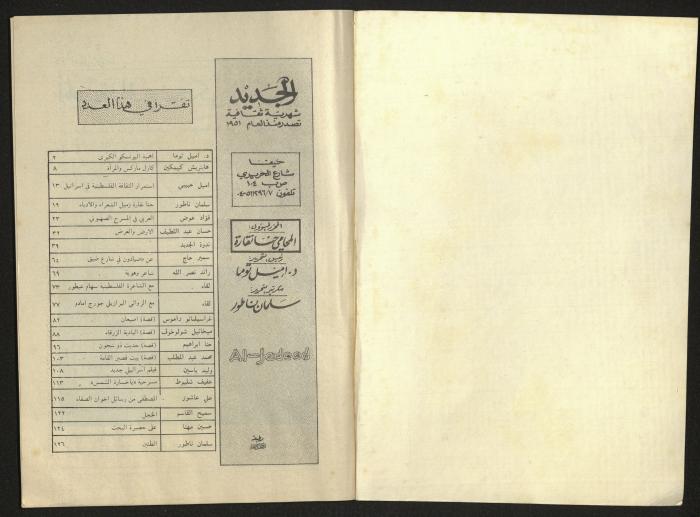 الجديد
شهرية ثقافية
تصدر منذ العام ١٩٥١
حيفا
شارع الحريري
ص.ب ١٠٤
تلفون ٥١١٢٩٦/٧-٠٤
المحرر المسؤول:
المحامي حنا نقارة
رئيس التحرير:
د. اميل توما
سكرتير التحرير:
سلمان ناطور
Al-Jadeed
تقرأ في هذا العدد
د. اميل توما اهمية اليونسكو الكبرى ٢
هاينريش كيمكين كارل ماركس والمرأة ٨
اميل حبيبي استمرار الثقافة الفلسطينية في اسرائيل ١٣
سلمان ناطور حنا نقارة زميل الشعراء والادباء ١٩
فؤاد عوض العربي في المسرح الصهيوني ٢٣
حسان عبد اللطيف الارض والعرض ٣٢
ندوة الجديد ٣٩
سمير حاج عن «صيادون في شارع ضيق ٦٤
رائد نصر الله شاعر وهوية ٦٩
لقاء . مع الشاعرة الفلسطينية سهام عيطور ٧٣
لقاء مع الروائي البرازيلي جورج امادو ٧٧
غراسيليانو راموس (قصة) اصبعان ٨٢
ميخائيل شولوخوف (قصة) البادية الزرقاء ٨٨
حنا ابراهيم (قصة) حديث ذو شجون ٩٦
محمد عبد المطلب (قصة) بيت قصير القامة ١٠٣
وليد ياسين فيلم اسرائيلي جديد ١٠٨
عفيف شليوط مسرحية «يا خسارة الشمس» ١١٣
علي عاشور المصطفى من رسائل اخوان الصفاء ١١٥
سميح القاسم الخجل ١٢٢
حسين مهنا على خصيرة البحث ١٢٤
سلمان ناطور الظنين ١٢٦